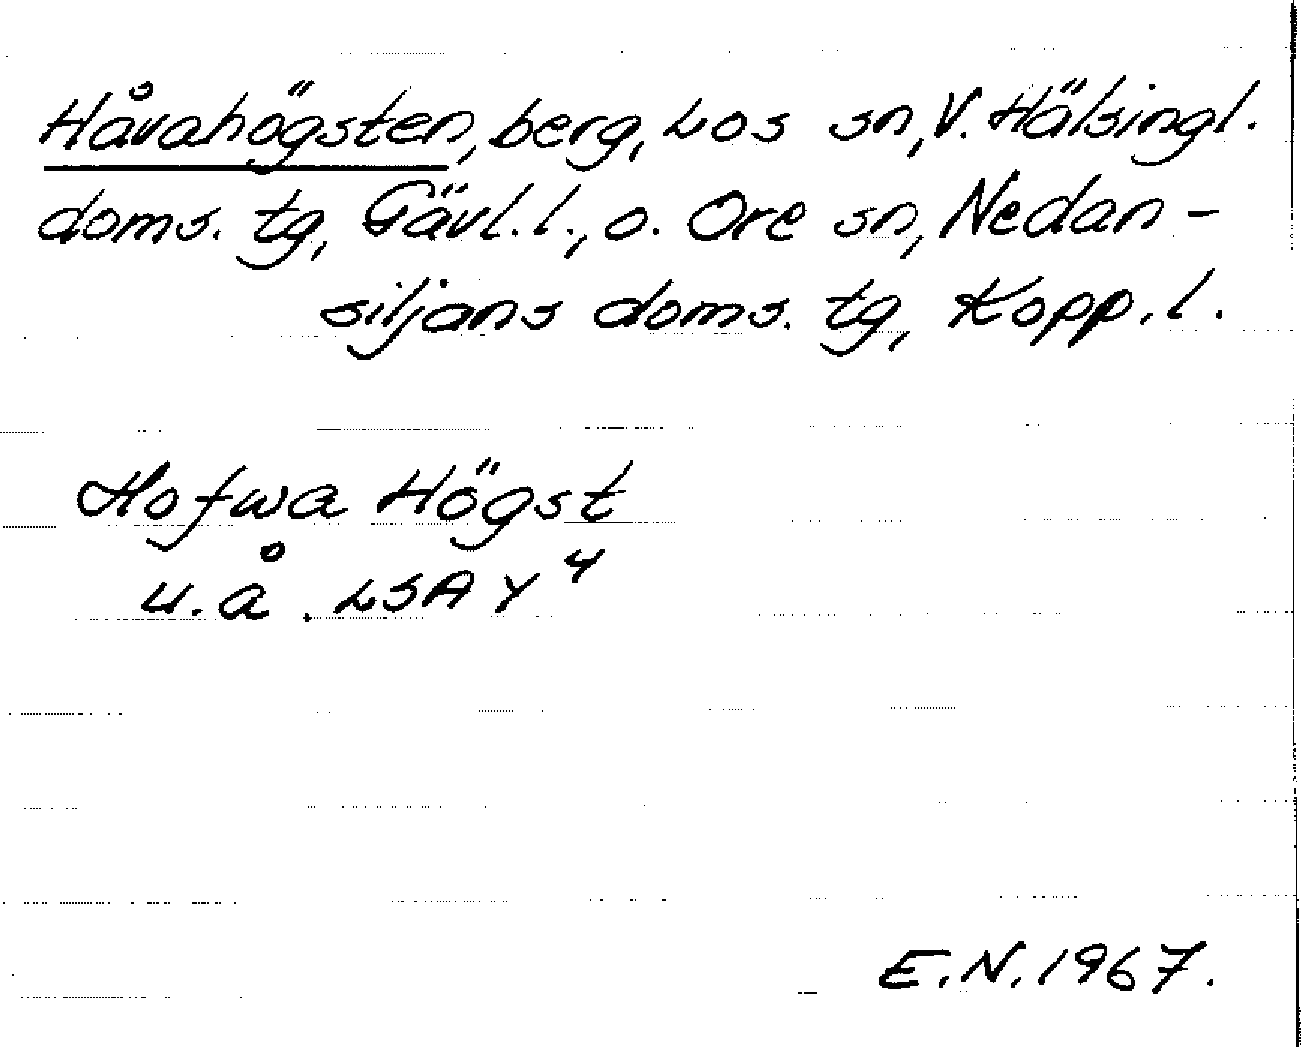 Håvahögsten, berg, Los sn, V. Hälsingl.
doms. tg, Gävl. l., o. Ore sn, Nedan-
siljans doms. tg, Kopp. l.
Hofwa Högst
u. å. LSA Y 4
E. N. 1967.